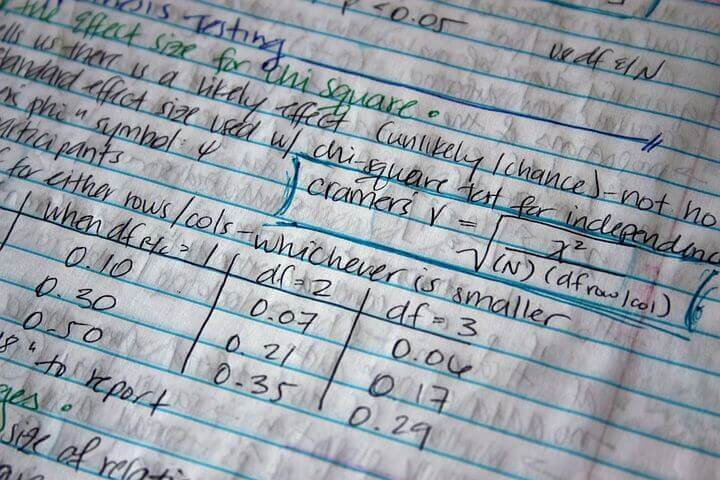 p < 0.05
Testing
effect size for chi square.
us there is a likely effect (unlikely / chance) - not
standard effect size used w/ chi-square test for independenc
phi symbol: φ
participants
cramers V = √ χ² / (N)(df row/col)
for either rows/cols - whichever is smaller
when df r/c = 1 df = 2 df = 3
0.10 0.07 0.06
0.30 0.21 0.17
0.50 0.35 0.29
to report
size of